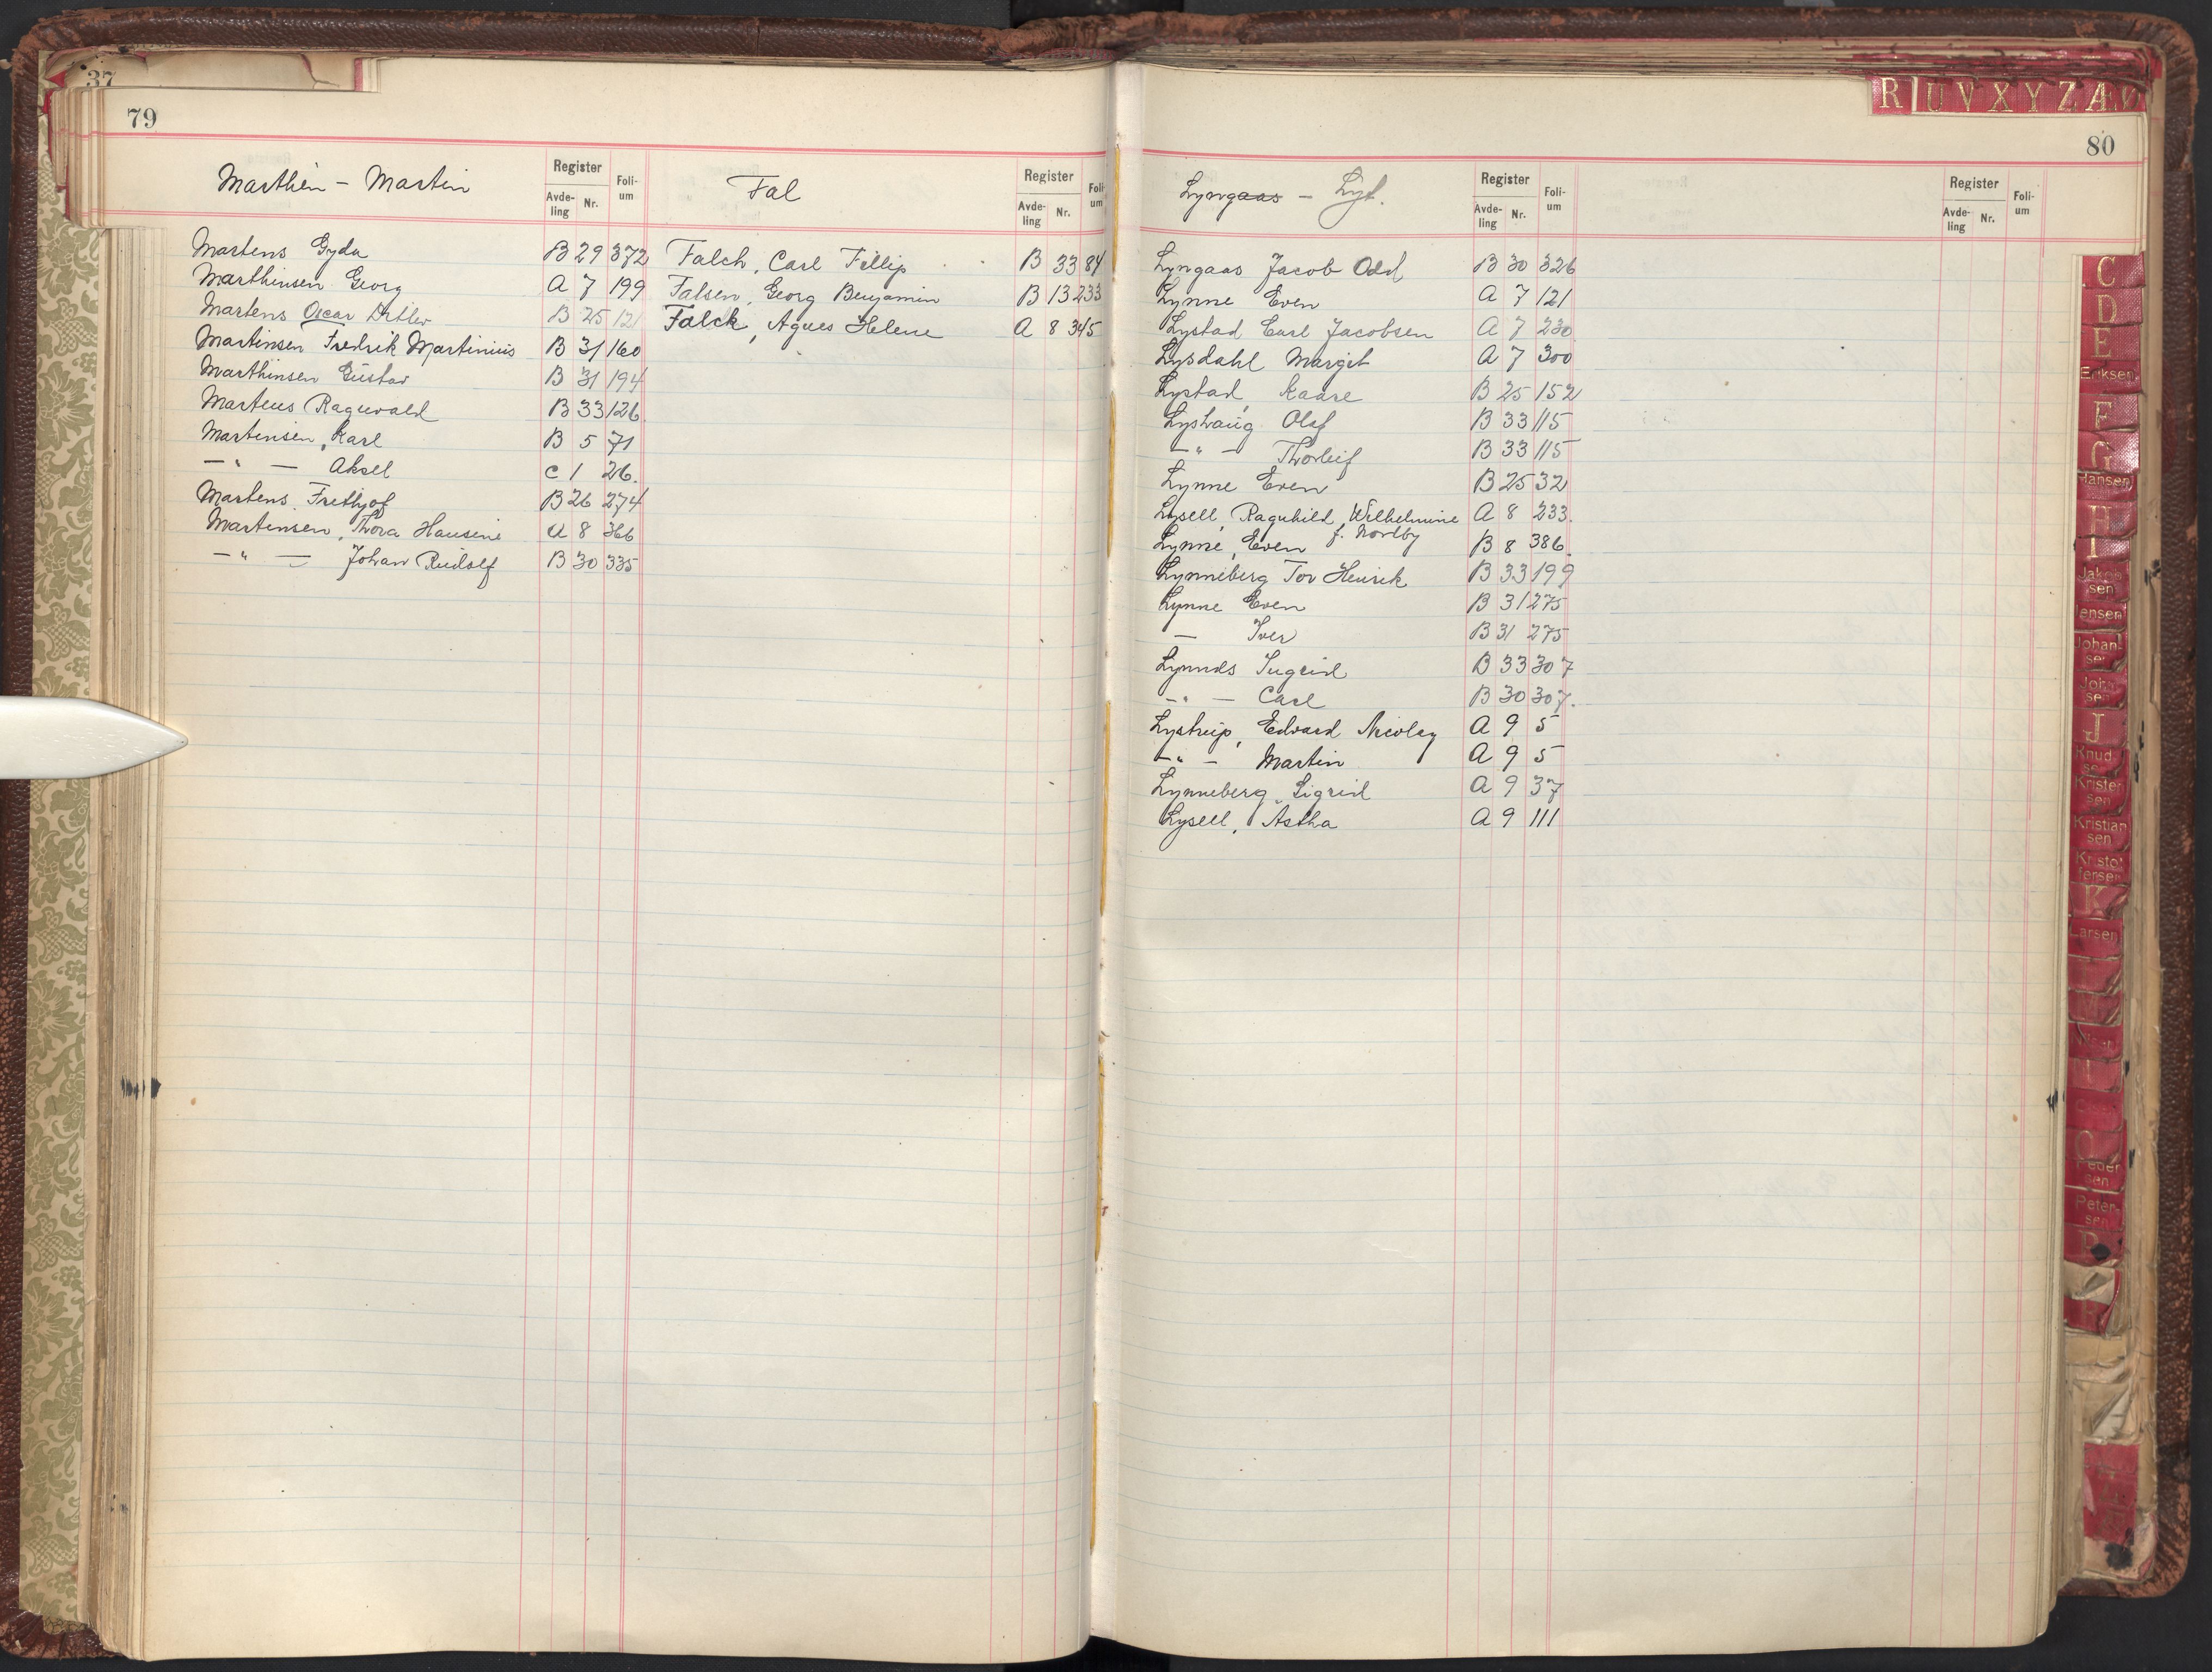 37
79
Marthin - Martin
Register
Avde-
ling
Nr.
Foli-
um
Martens Gyda B 29 372
Marthinsen Georg A 7 199
Martens Oscar Ditlev B 25 121
Martinsen Fredrik Martinius B 31 160
Marthinsen Gustav B 31 194
Martens Ragnvald B 33 126
Martinsen, Karl B 5 71
-"- Aksel C 1 26.
Martens Frethjof B 26 274
Martensen, Thora Hansine A 8 366
-"- Johan Rudolf B 30 335
Fal
Register
Avde-
ling
Nr.
Foli-
um
Falch, Carl Fillip B 33 84
Falsen, Georg Benjamin B 13 233
Falck, Agnes Helene A 8 345
R U V X Y Z Æ Ø
80
Lyngaas - Lyt.
Register
Avde-
ling
Nr.
Foli-
um
Lyngaas Jacob Odd B 30 326
Lynne Even A 7 121
Lystad Carl Jacobsen A 7 230
Lysdahl Margit A 7 300
Lystad, Kaare B 25 152
Lyshaug Olaf B 33 115
-"- Thorleif B 33 115
Lynne Even B 25 32
Lysell, Ragnhild, Wilhelmine A 8 233.
f. Norlby
Lynne, Even B 8 386.
Lynneberg Tor Henrik B 33 199
Lynne Even B 31 275
- Iver B 31 275
Lynnds Ingrid B 33 307
-"- Carl B 30 307.
Lystrup, Edvard Nicolay A 9 5
-"- Martin A 9 5
Lynneberg, Sigrid A 9 37
Lysell, Astha A 9 111
Register
Avde-
ling
Nr.
Foli-
um
C
D
E
Eriksen
F
G
Hansen
H
I
Jakob
sen
Jensen
Johan-
sen
Joh
sen
J
Knud
se
Kristen
sen
Kristian
sen
Kristof
fersen
K
Larsen
O
Peder
sen
Peter-
sen
P